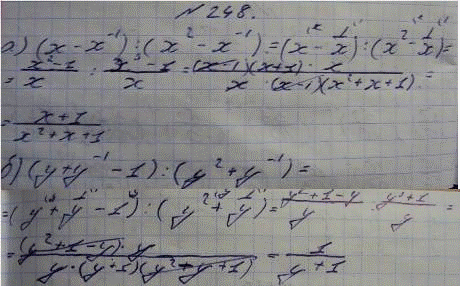 № 248.
а) (x - x⁻¹) : (x² - x⁻¹) = (x - 1/x) : (x² - 1/x) =
= (x²-1)/x : (x³-1)/x = ((x-1)(x+1) · x)/(x · (x-1)(x²+x+1)) =
= (x+1)/(x²+x+1)
б) (y + y⁻¹ - 1) : (y² + y⁻¹) =
= (y + 1/y - 1) : (y² + 1/y) = (y²+1-y)/y : (y³+1)/y =
= ((y²+1-y) · y)/(y · (y+1)(y²-y+1)) = 1/(y+1)